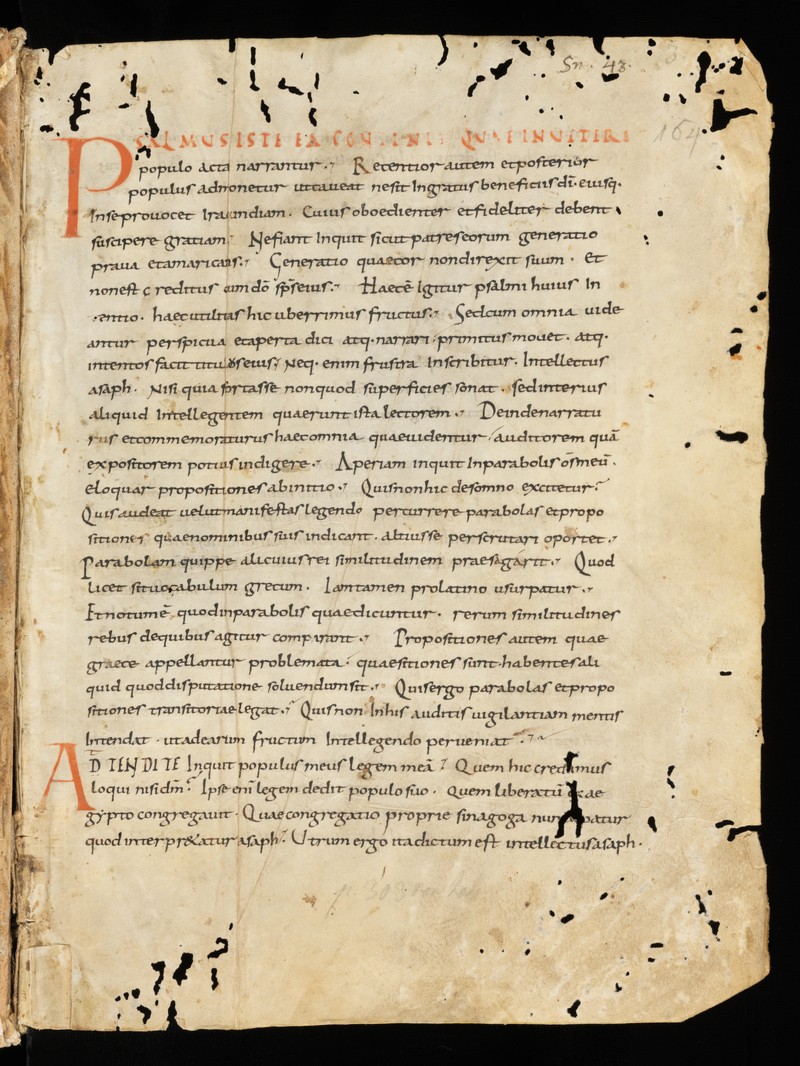 Sn. 43.
164
PSALMUS ISTE EA CON INE QUAE IN UETERI
populo acta narrantur. Recentior autem et posterior
populus admonetur ut caueat ne sit Ingratus beneficiis dī. eiusq.
In se prouocet Iracundiam. Cuius oboedienter et fideliter debent
suscipere gratiam. Ne fiant Inquit sicut patres eorum generatio
praua et amaricans. Generatio quae cor non direxit suum. Et
non est creditus cum dō sp̄s eius. Haec ē Igitur psalmi huius In
entio. haec utilitas hic uberrimus fructus. Sed cum omnia uide
antur perspicua et aperta dici atq. narrari primitus mouet. atq.
intentos facit titulus eius. Neq. enim frustra Inscribitur. Intellectus
asaph. Nisi quia fortasse non quod superficies sonat. sed interius
aliquid Intellegentem quaerunt ista lectorem. Deinde narratu
rus et commemoraturus haec omnia quae uidentur auditorem quā
expositorem potius indigere. Aperiam inquit In parabolis os meū.
eloquar propositiones ab initio. Quis non hic de somno excitetur?
Quis audeat uelut manifestas legendo percurrere parabolas et propo
sitiones quae nominibus suis indicant. altius se perscrutari oportet.
Parabolam quippe alicuius rei similitudinem praesagarit. Quod
licet sit uocabulum grecum. Iam tamen pro latino usurpatur.
Et notum ē quod in parabolis quae dicuntur. rerum similitudines
rebus de quibus agitur comparant. Propositiones autem quae
graece appellantur problemata. quaestiones sunt habentes ali
quid quod disputatione soluendum sit. Quis ergo parabolas et propo
sitiones transitoriae legat. Quis non In his auditis uigilantiam mentis
Intendat. ut ad earum fructum Intellegendo perueniat.
ADTENDITE Inquit populus meus legem meā? Quem hic credimus
loqui nisi dm̄? Ipse eni legem dedit populo suo. quem liberatū ex ae
gypto congregauit. Quae congregatio proprie sinagoga nuncupatur
quod interpretatur asaph. Utrum ergo ita dictum est intellectus asaph.